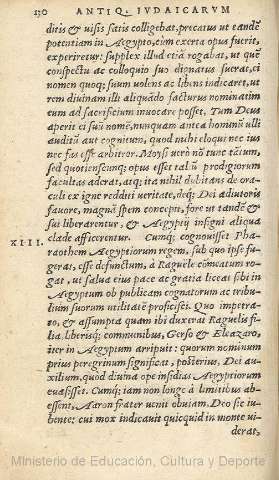 130 ANTIQ. IVDAICARVM
ditis & visis satis colligebat, precatus ut eandē
potentiam in Aegypto, cùm exerta opus fuerit,
experiretur: supplex illud etiā rogabat, ut quē
conspectu ac colloquio suo dignatus fuerat, ei
nomen quoq; suum uolens ac libens indicaret, ut
rem diuinam illi aliquādo facturus nominatim
eum ad sacrificium inuocare posset. Tum Deus
aperit ei suū nomē, nunquam antea hominū ulli
auditū aut cognitum, quod nubi eloqui nec ius
nec fas esse arbitror. Moysi uerò nō tunc tātùm,
sed quotiescunq; opus esset talíū prodigiorum
facultas aderat, atq; ita nihil dubitans de ora-
culi ex igne redditi ueritate, deq; Dei adiutoris
fauore, magnā spem concepit, fore ut tandē &
sui liberarentur, & Aegyptij insigni aliqua
clade afficerentur. Cumq; cognouisset Pha-
XIII. raothem Aegyptiorum regem, sub quo ipse fu-
gerat, esse defunctum, à Raguële cūmeatum ro-
gat, ut salua eius pace ac gratia liceat sibi in
Aegyptum ob publicam cognatorum ac tribu-
lium suorum utilitatē proficisci. Quo impetra-
to, & assumpta quam ibi duxerat Raguelis fi-
lia, liberisq; communibus, Gerso & Eleazaro,
iter in Aegyptum arripuit: quorum nominum
prius peregrinum significat, posterius, Dei au-
xilium, quòd diuina ope insidias Aegyptiorum
euasisset. Cumq; iam non longè à limitibus ab-
essent, Aaron frater uenit obuiam. Deo sic iu-
bente: cui mox indicauit quicquid in monte ui-
derat,
Ministerio de Educación, Cultura y Deporte